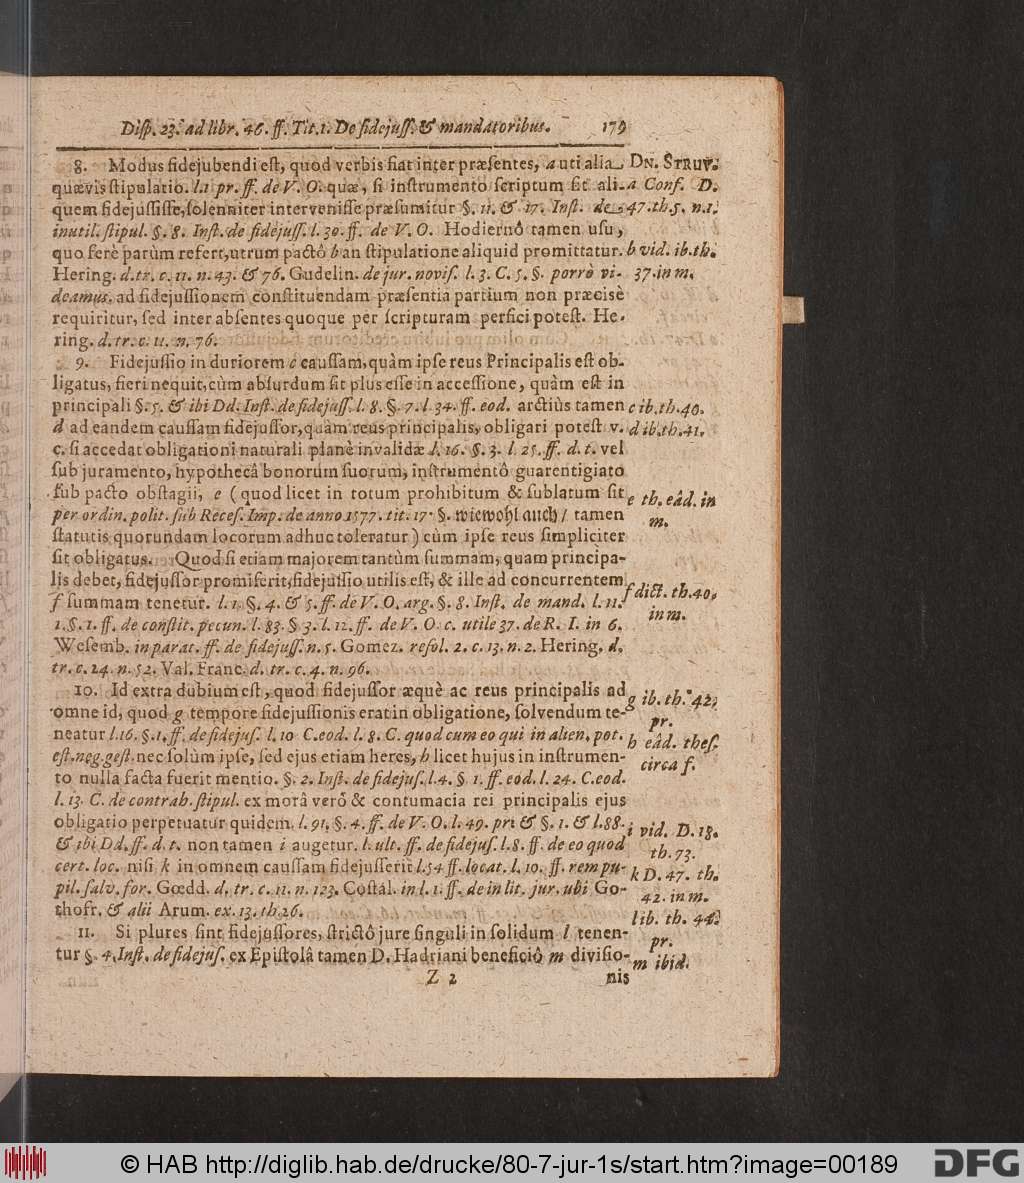 Diſp. 23. ad libr. 46. ff. Tit. 1. De fidejuſſ. & mandatoribus. 179
8. Modus fidejubendi eſt, quod verbis fiat inter præſentes, a uti alia
quævis ſtipulatio. l. 1 pr. ff. de V. O. quæ, ſi inſtrumento ſcriptum ſit ali-
quem fidejuſſiſſe, ſolenniter interveniſſe præſumitur §. 11. & 17. Inſt. de
inutil. ſtipul. §. 8. Inſt. de fidejuſſ. l. 30. ff. de V. O. Hodiernô tamen uſu,
quo ferè parùm refert, utrum pactô b an ſtipulatione aliquid promittatur.
Hering. d. tr. c. 11. n. 43. & 76. Gudelin. de jur. noviſ. l. 3. C. 5. §. porrò vi-
deamus. ad fidejuſſionem conſtituendam præſentia partium non præcisè
requiritur, ſed inter abſentes quoque per ſcripturam perfici poteſt. He-
ring. d. tr. c. 11. n. 76.
9. Fidejuſſio in duriorem c cauſſam, quàm ipſe reus Principalis eſt ob-
ligatus, fieri nequit, cùm abſurdum ſit plus eſſe in acceſſione, quàm eſt in
principali §. 5. & ibi Dd. Inſt. de fidejuſſ. l. 8. §. 7. l. 34. ff. eod. arctiùs tamen
d ad eandem cauſſam fidejuſſor, quàm reus principalis, obligari poteſt v.
c. ſi accedat obligationi naturali planè invalidæ l. 16. §. 3. l. 25. ff. d. t. vel
ſub juramento, hypothecâ bonorum ſuorum, inſtrumentô guarentigiato
ſub pacto obſtagii, e (quod licet in totum prohibitum & ſublatum ſit
per ordin. polit. ſub Receſ. Imp. de anno 1577. tit. 17. §. wiewohl auch / tamen
ſtatutis quorundam locorum adhuc toleratur) cùm ipſe reus ſimpliciter
ſit obligatus. Quod ſi etiam majorem tantùm ſummam, quam principa-
lis debet, fidejuſſor promiſerit, fidejuſſio utilis eſt, & ille ad concurrentem
f ſummam tenetur. l. 1. §. 4. & 5. ff. de V. O. arg. §. 8. Inſt. de mand. l. 11.
1. §. 1. ff. de conſtit. pecun. l. 83. § 3. l. 12. ff. de V. O. c. utile 37. de R. I. in 6.
Weſemb. in parat. ff. de fidejuſſ. n. 5. Gomez. reſol. 2. c. 13. n. 2. Hering. d.
tr. c. 24. n. 52. Val. Franc. d. tr. c. 4. n. 96.
10. Id extra dubium eſt, quod fidejuſſor æquè ac reus principalis ad
omne id, quod g tempore fidejuſſionis erat in obligatione, ſolvendum te-
neatur l. 16. §. 1. ff. de fidejuſ. l. 10 C. eod. l. 8. C. quod cum eo qui in alien. pot.
eſt. neg. geſt. nec ſolùm ipſe, ſed ejus etiam heres, h licet hujus in inſtrumen-
to nulla facta fuerit mentio. §. 2. Inſt. de fidejuſ. l. 4. § 1. ff. eod. l. 24. C. eod.
l. 13. C. de contrah. ſtipul. ex morâ verò & contumacia rei principalis ejus
obligatio perpetuatur quidem. l. 91. §. 4. ff. de V. O. l. 49. pr. & §. 1. & l. 88.
& ibi Dd. ff. d. t. non tamen i augetur. l. ult. ff. de fidejuſ. l. 8. ff. de eo quod
cert. loc. niſi k in omnem cauſſam fidejuſſerit l. 54 ff. locat. l. 10. ff. rem pu-
pil. ſalv. for. Gœdd. d. tr. c. 11. n. 123. Coſtal. in l. 1. ff. de in lit. jur. ubi Go-
thofr. & alii Arum. ex. 13. th. 26.
11. Si plures ſint fidejuſſores, ſtrictô jure ſinguli in ſolidum l tenen-
tur §. 4. Inſt. de fidejuſ. ex Epiſtolâ tamen D. Hadriani beneficiô m diviſio-
Z 2 nis
DN. STRUV.
a Conf. D.
47. th. 5. n. 1.
b vid. ib. th.
37. in m.
c ib. th. 40.
d ib. th. 41.
e th. eâd. in
m.
f dict. th. 40.
in m.
g ib. th. 42.
pr.
h eâd. theſ.
circa f.
i vid. D. 18.
th. 73.
k D. 47. th.
42. in m.
l ib. th. 44.
pr.
m ibid.
© HAB http://diglib.hab.de/drucke/80-7-jur-1s/start.htm?image=00189
DFG